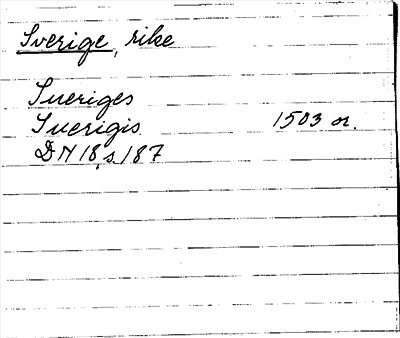 Sverige, rike
Sueriges
Suerigis 1503 or.
DN 18, s 187